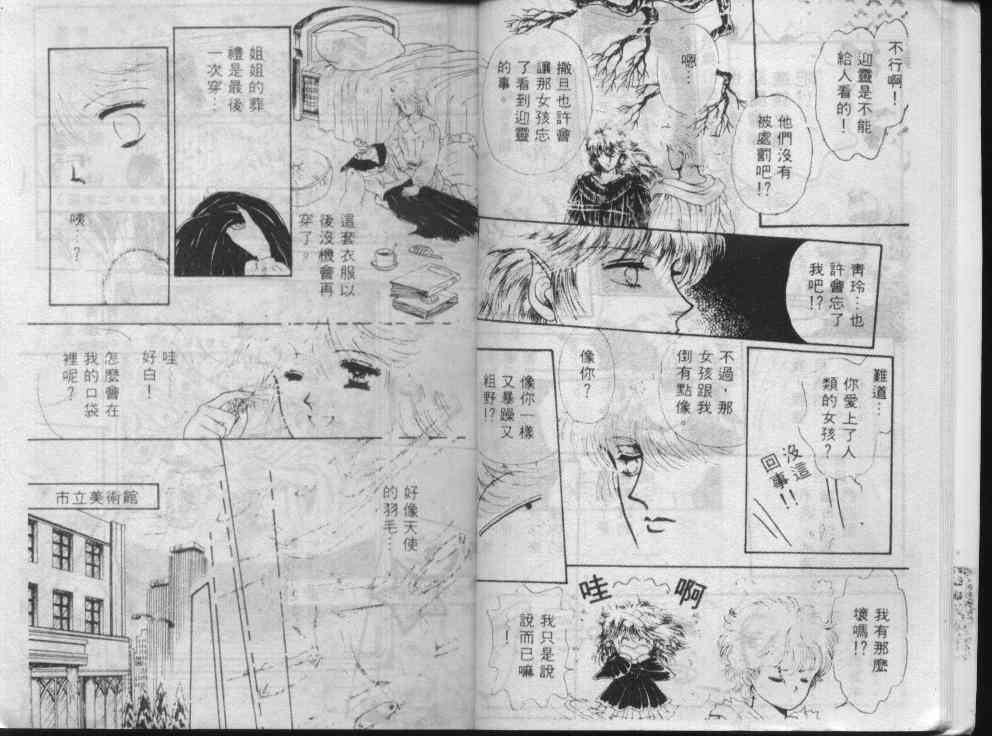 不行啊！
迎靈是不能
給人看的！
他們沒有
被處罰吧！？
嗯…
撒旦也許會
讓那女孩忘
了看到迎靈
的事。
青玲…也
許會忘了
我吧！？
難道…
你愛上了人
類的女孩？
沒這
回事！！
不過，那
女孩跟我
倒有點像。
像你？
像你一樣
又暴躁又
粗野！？
我有那麼
壞嗎！？
哇啊
我只是說
說而已嘛
！
姐姐的葬
禮是最後
一次穿…
這套衣服以
後沒機會再
穿了。
咦…？
哇…
好白！
怎麼會在
我的口袋
裡呢？
好像天使
的羽毛…
市立美術館